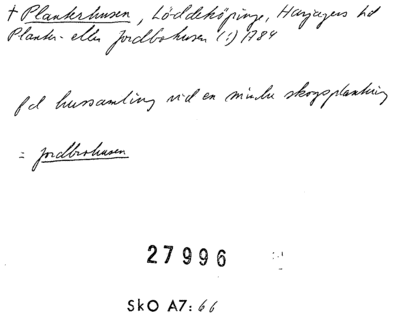 † Plankerhusen, Löddeköpinge, Harjagers hd
Planker- eller Jordbohusen (:) 1784
fd hussamling vid en mindre skogsplantering
= Jordbohusen
27996
SkO A7:66